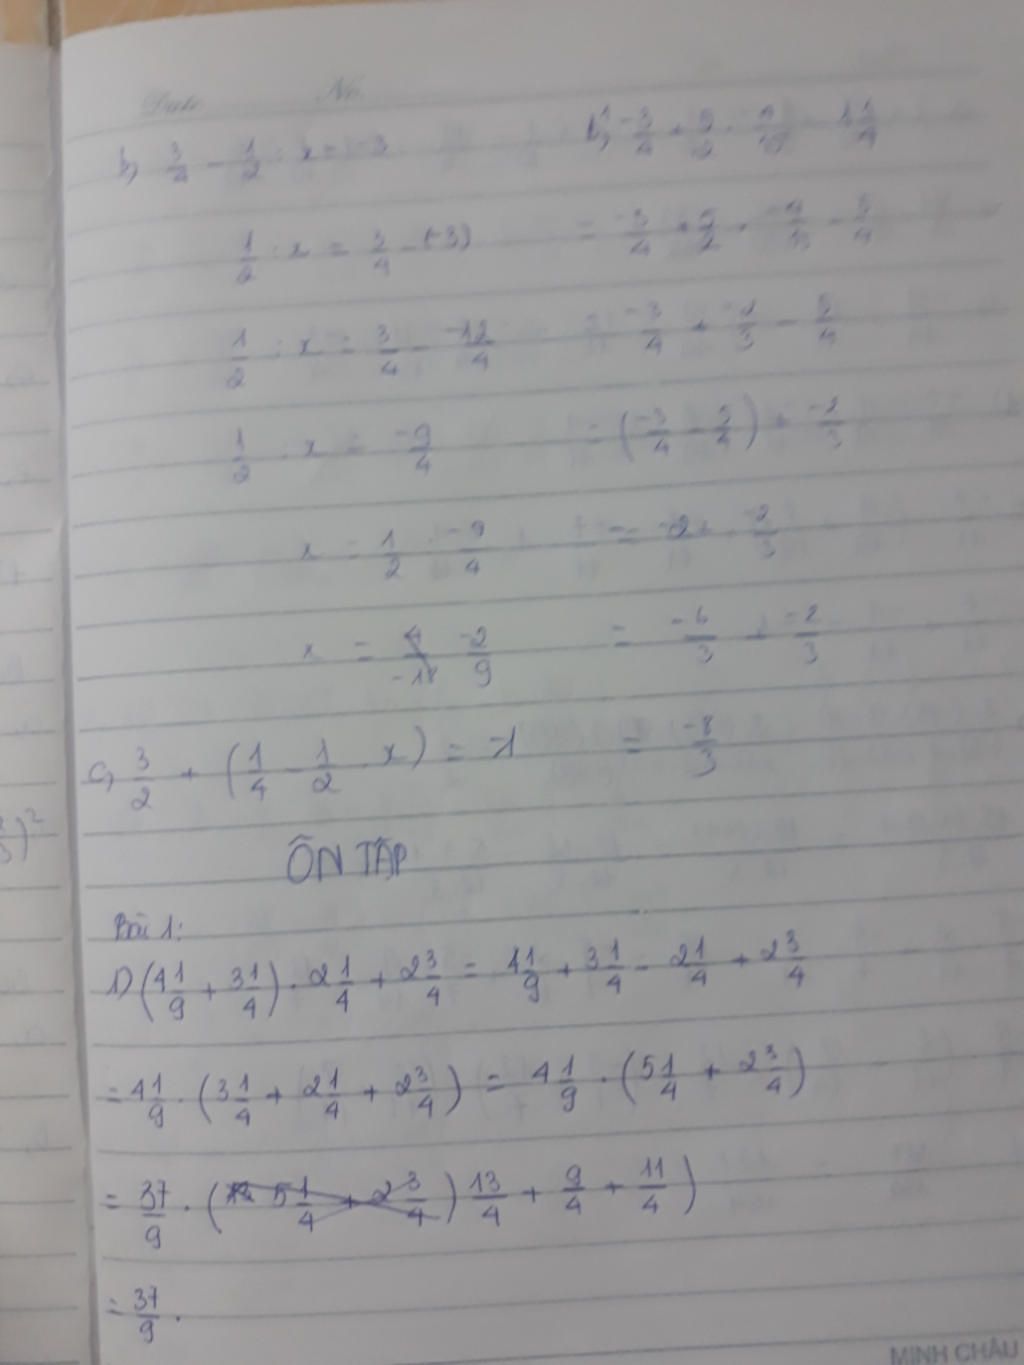 Date No.
b, 3/4 - 1/2 : x = -3
1/2 : x = 3/4 - (-3)
1/2 : x = 3/4 - -12/4
1/2 : x = -9/4
x = 1/2 : -9/4
x = 4/-18 -2/9
c, 3/2 + (1/4 - 1/2 . x) = -1
= -3/4 + 5/2 . -4/15 - 5/4
= -3/4 + -2/3 - 5/4
= (-3/4 - 5/4) + -2/3
= -2 + -2/3
= -6/3 + -2/3
= -8/3
ÔN TẬP
Bài 1:
1) (4 1/9 + 3 1/4) . 2 1/4 + 2 3/4 = 4 1/9 + 3 1/4 - 2 1/4 + 2 3/4
= 4 1/9 . (3 1/4 + 2 1/4 + 2 3/4) = 4 1/9 . (5 1/4 + 2 3/4)
= 37/9 . (5 1/4 + 2 3/4) 13/4 + 9/4 + 11/4)
= 37/9 .
MINH CHÂU